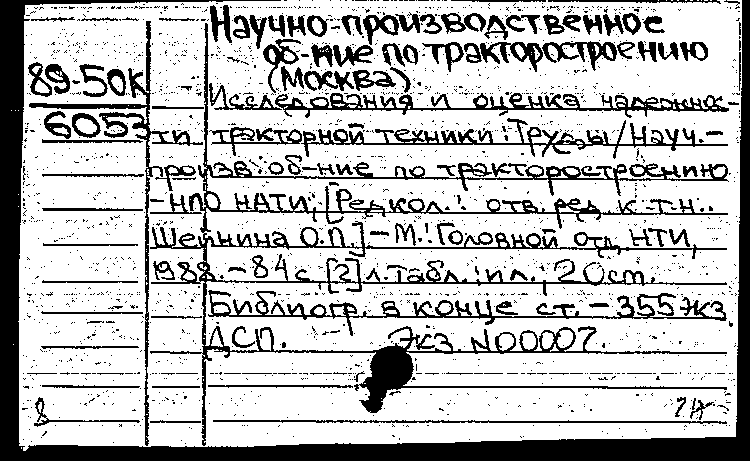 Научно-производственное
об-ние по тракторостроению
(Москва).
89-50к
6053
Исследования и оценка надежнос-
ти тракторной техники: Труды/Науч.-
произв. об-ние по тракторостроению
-НПО НАТИ; [Редкол.: отв. ред. к.т.н..
Шейнина О.П.].-М.: Головной отд. НТИ,
1988.-84с, [2] л.табл.: ил.; 20 см.
Библиогр. в конце ст. - 355 экз.
ДСП. Экз. N00007.
8